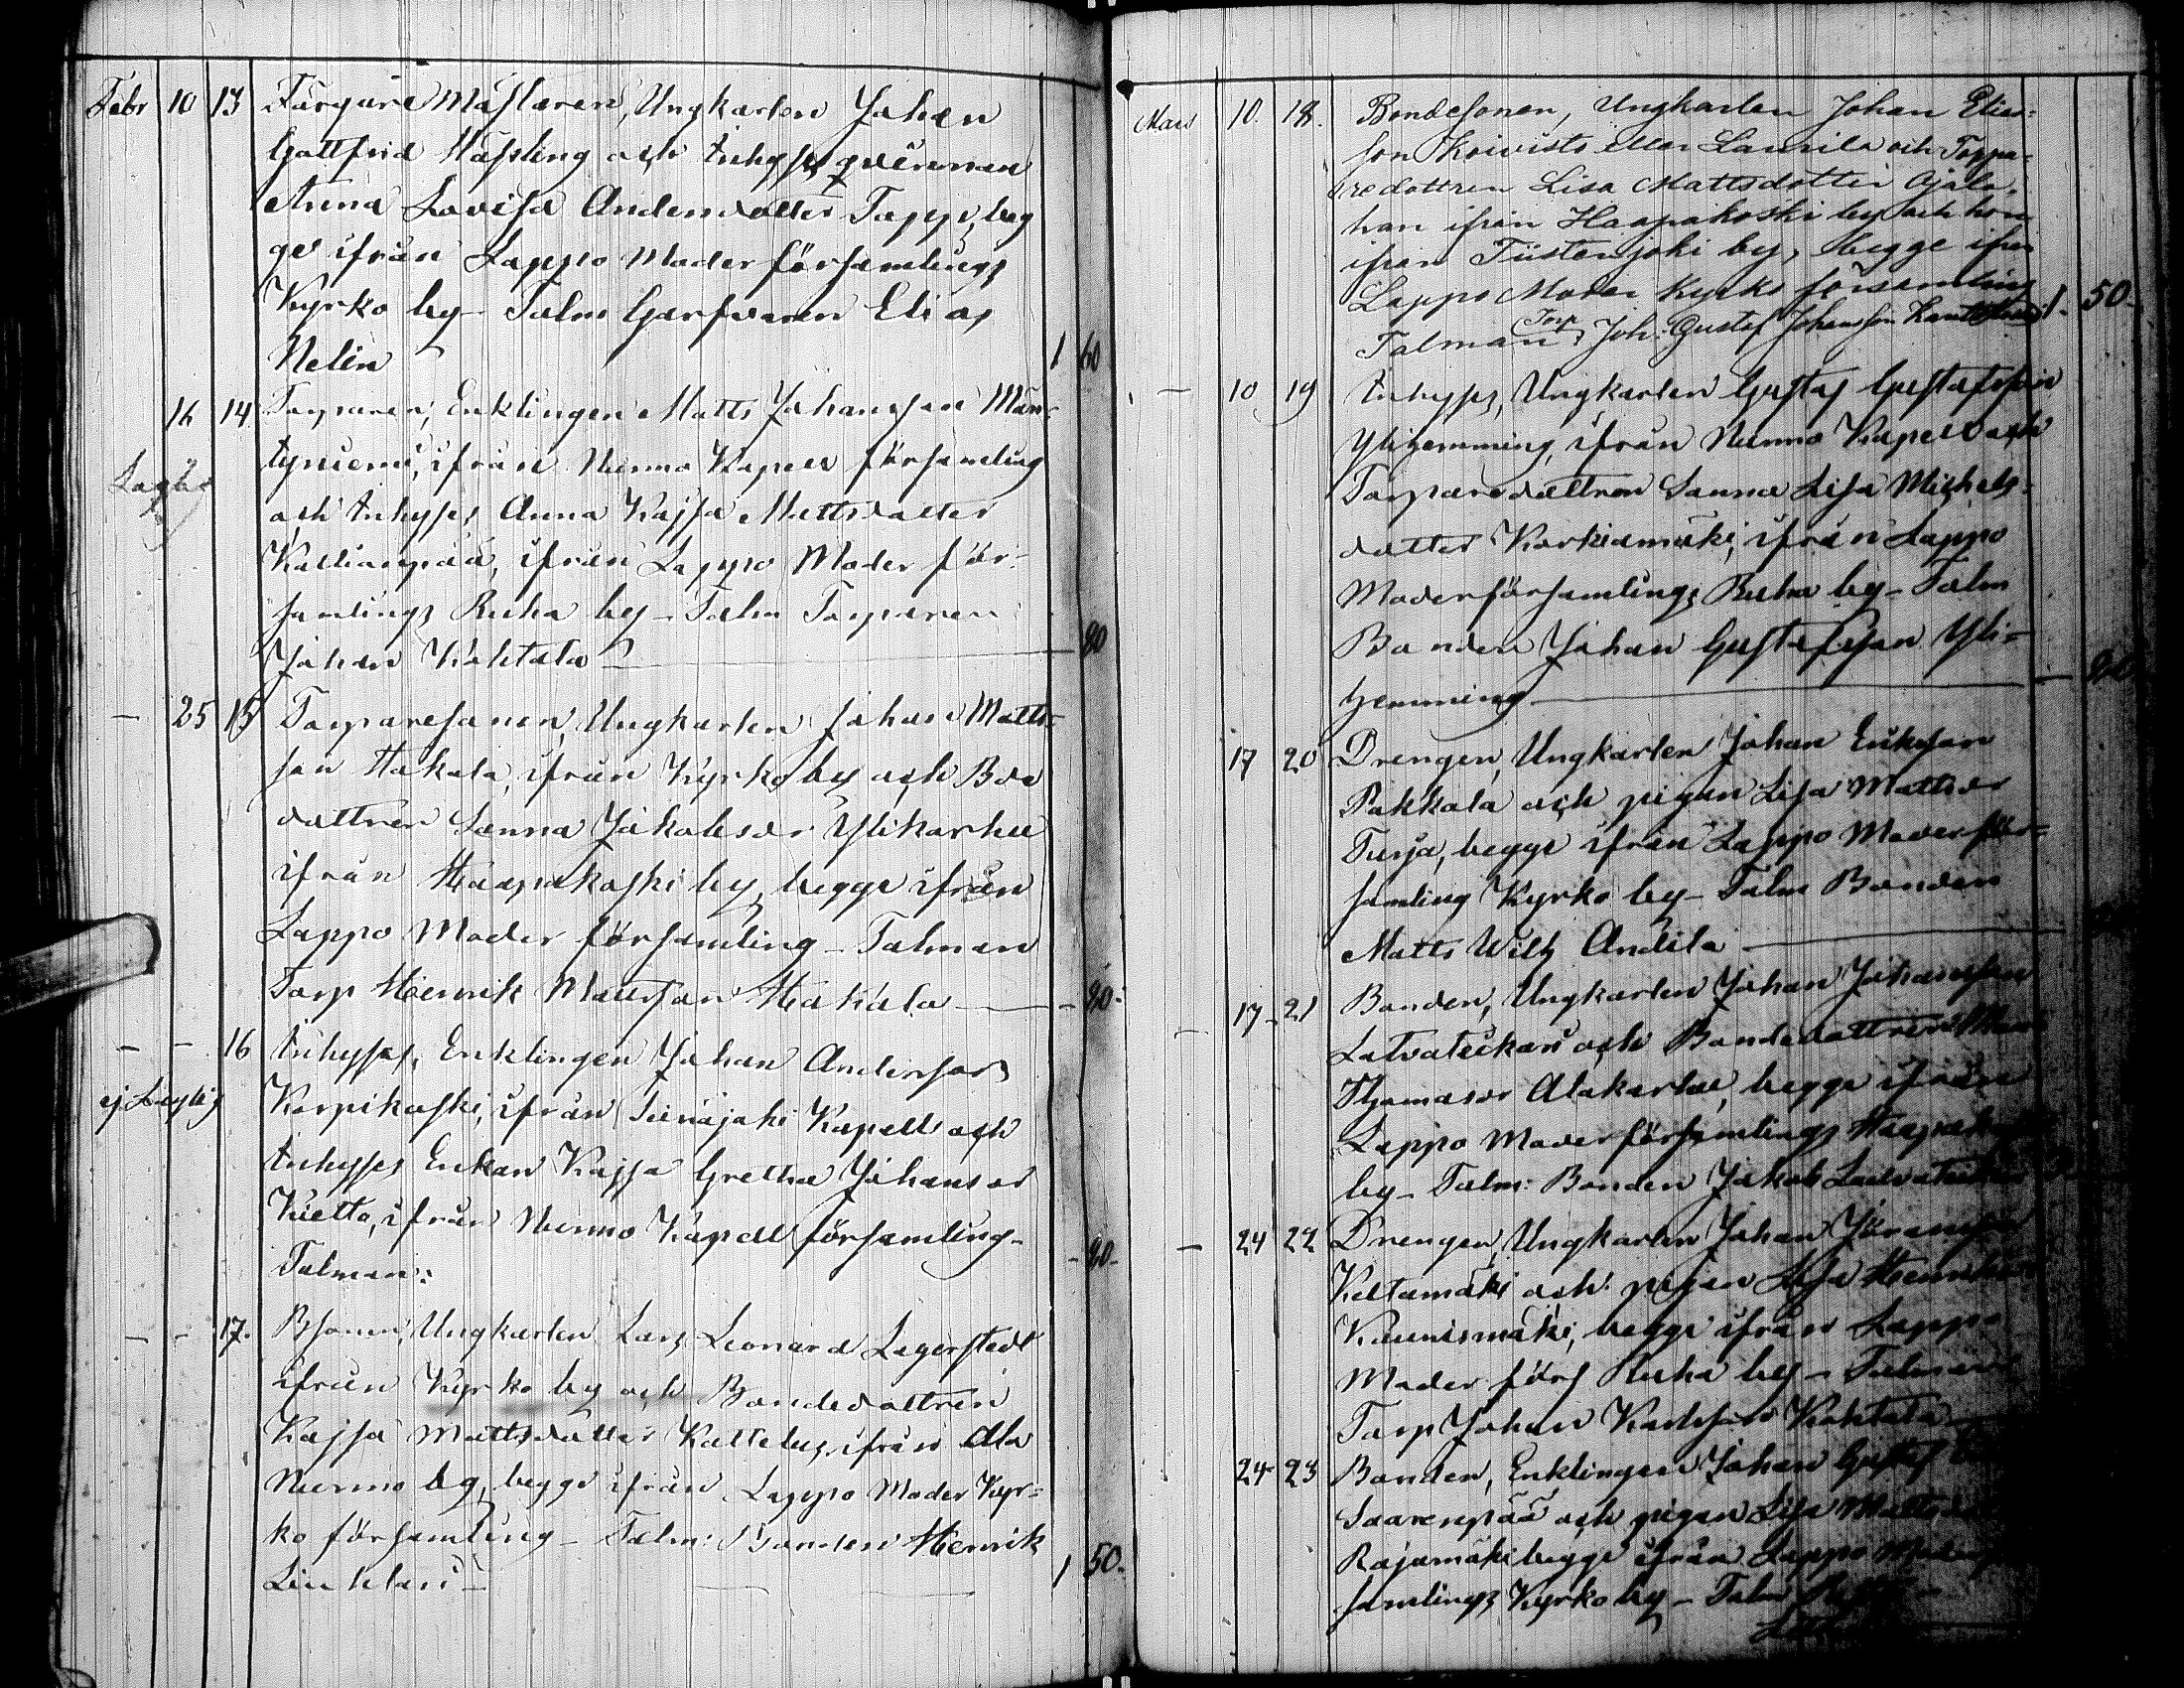 Febr 10 13 Färgare Mästaren, Ungkarlen Johan
Gottfrid Hassling och Inhyses qvinnan
Anna Lovisa Andersdotter Tappi, beg
ge ifrån Lappo Moder församlings
Kyrko by - Talm Garfvaren Elias
Nelin 1 60
16 14 Torparen, Enklingen Matts Johansson Män-
tyniemi, ifrån Nurmo Kapell församling
och Inhyses Anna Kajsa Mattsdotter
Kallionpää, ifrån Lappo Moder för-
samlings Ruha by - Talm Torparen
Johan Kohtala - 80
- 25 15 Torparesonen, Ungkarlen Johan Matts-
son Hakala, ifrån Kyrko by och Bde
dottren Sanna Jakobsdr Ylikarhu
ifrån Haapakoski by, begge ifrån
Lappo Moder församling - Talman
Torp Henrik Mattsson Hakala - 80-
- - 16 Inhyses, Enklingen Johan Andersson
ej Laglig
Korpikoski, ifrån Peinäjoki Kapell och
Inhyses Enkan Kajsa Gretha Johansdr
Kietto, ifrån Nurmo Kapell församling -
Talman: - 80-
- - 17. Bsonen, Ungkarlen Lars Leonard Lagerstedt
ifrån Kyrko by och Bondedottren
Kajsa Mattsdotter Kattelus, ifrån Ala
Nurmo by, begge ifrån Lappo Moder Kyr-
ko församling - Talm: Bonden Henrik
1 50-
Mars 10. 18. Bondesonen, Ungkarlen Johan Elias-
son Koivisto eller Laurila och Torpa-
redottren Lisa Mattsdotter Ojala,
han ifrån Haapakoski by och hon
ifrån Tiistenjoki by, begge ifrån
Lappo Moder Kyrko församling
Talman, Torp Joh: Gustaf Johansson 1. 50-
- 10 19 Inhyses, Ungkarlen Gustaf Gustafsson
Ylihemming, ifrån Nurmo Kapell och
Torparedottren Sanna Lisa Michels-
dotter Korkiamäki, ifrån Lappo
Moderförsamlings Ruha by - Talm
Bonden Johan Gustafsson Yli-
hemming - 80
17 20 Drengen, Ungkarlen Johan Eriksson
Pakkala och pigan Lisa Mattsdr
Turja, begge ifrån Lappo Moder för-
samling Kyrko by - Talm Bonden
Matts Wilh Andila -
- 17 - 21 Bonden, Ungkarlen Johan Johansson
Latvateikari och Bondedottren
Thomasdr Alakarhu, begge ifrån
Lappo Moder församlings
by - Talm: Bonden Jakob
- 24 22 Drengen, Ungkarlen Johan
Keltamäki och pigan Lisa
Kaunismäki, begge ifrån Lappo
Moder förs Ruha by - Talman
Torp Johan Karlsson Kohtala
24 23 Bonden, Enklingen Johan Gustaf
Saarenpää och pigan Lisa
Rajamäki begge ifrån Lappo
samlings Kyrko by - Talm